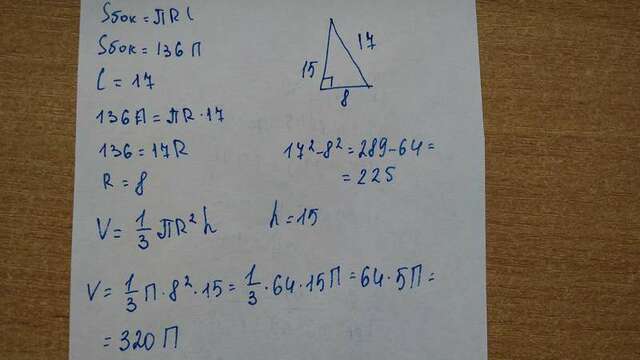 Sбок = πR l
Sбок = 136 π
l = 17
136π = πR · 17
136 = 17R
R = 8
V = 1/3 πR² h
17
15
8
17² - 8² = 289 - 64 =
= 225
h = 15
V = 1/3 π · 8² · 15 = 1/3 · 64 · 15π = 64 · 5π =
= 320 π